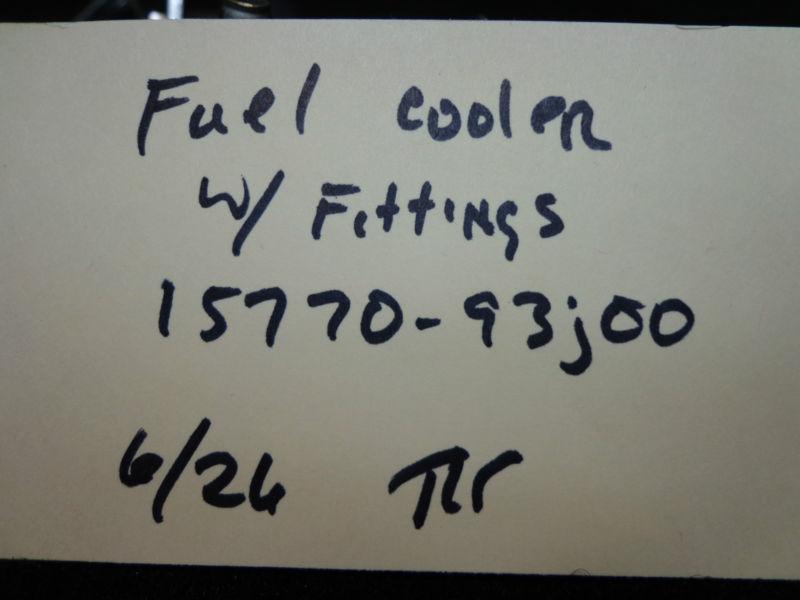 Fuel cooler
w/ Fittings
15770-93j00
6/26